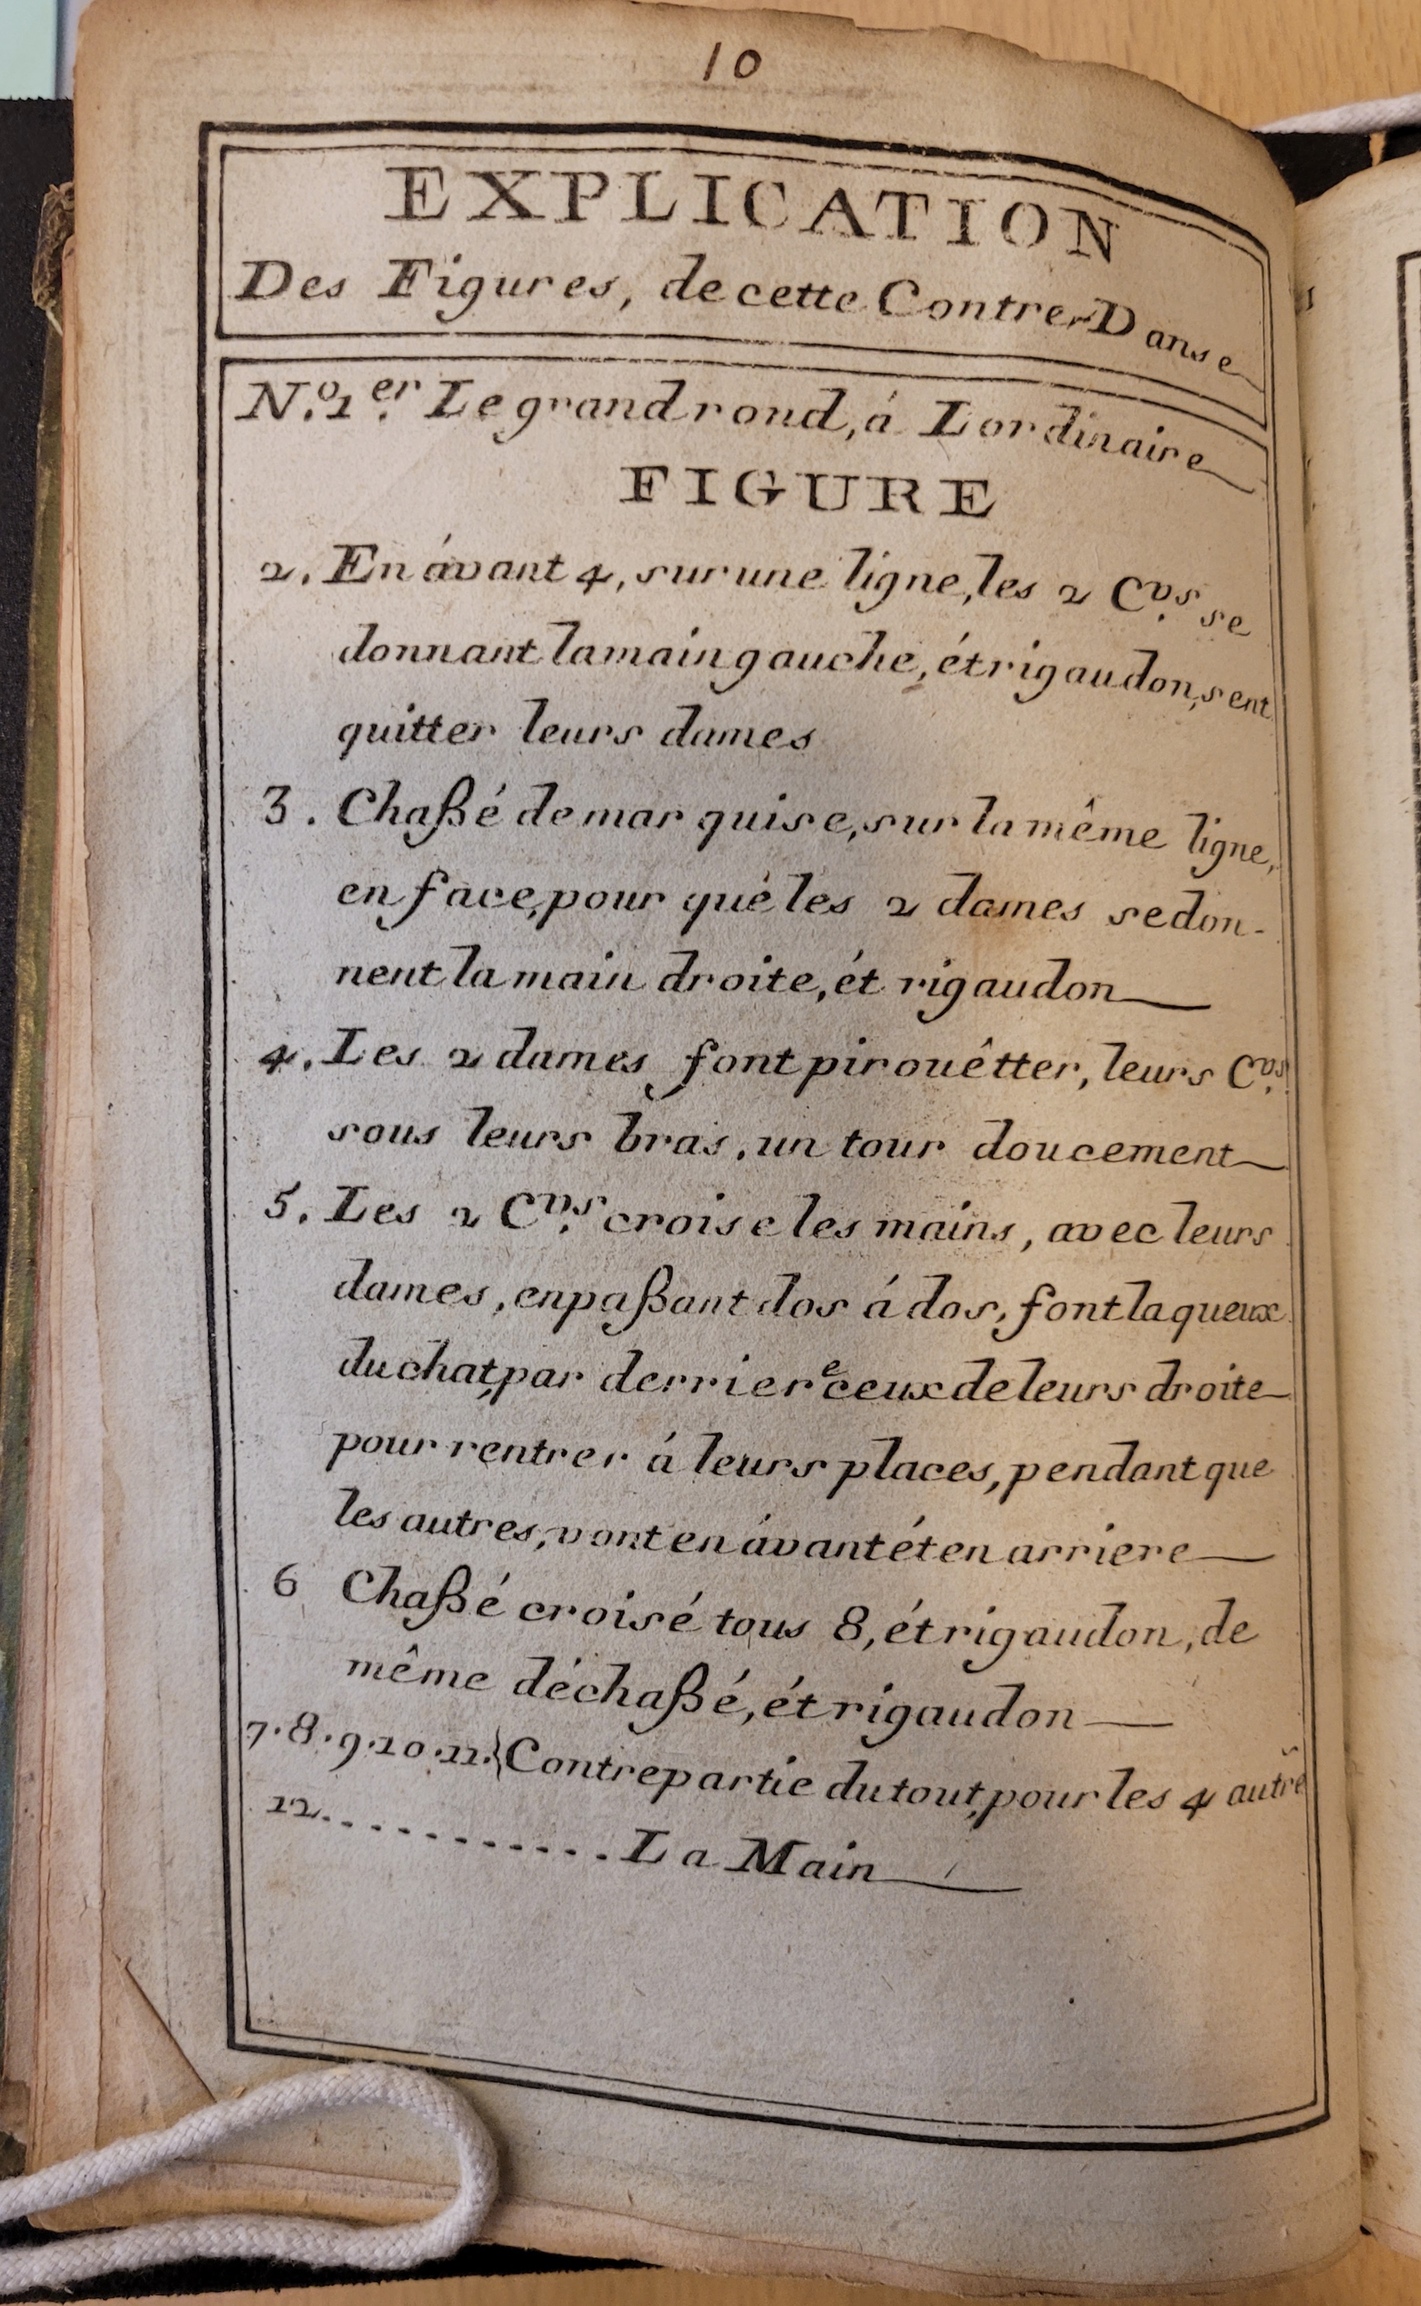 10
EXPLICATION
Des Figures, de cette Contre-Danse
N.º 1.er Le grand rond, á Lordinaire
FIGURE
2. En ávant 4, sur une ligne, les 2 C.vs se
donnant la main gauche, ét rigaudon, sent
quitter leurs dames
3. Chaßé de marquise, sur la même ligne,
en face, pour qué les 2 dames se don-
nent la main droite, ét rigaudon
4. Les 2 dames font pirouêtter, leurs C.vs
sous leurs bras, un tour doucement
5. Les 2 C.vs croise les mains, avec leurs
dames, en paßant dos á dos, font la queux
du chat, par derriere ceux de leurs droite
pour rentrer á leurs places, pendant que
les autres, vont en ávant ét en arriere
6 Chaßé croisé tous 8, ét rigaudon, de
même déchaßé, ét rigaudon
7.8.9.10.11.} Contrepartie du tout, pour les 4 autrẽ
12............ La Main